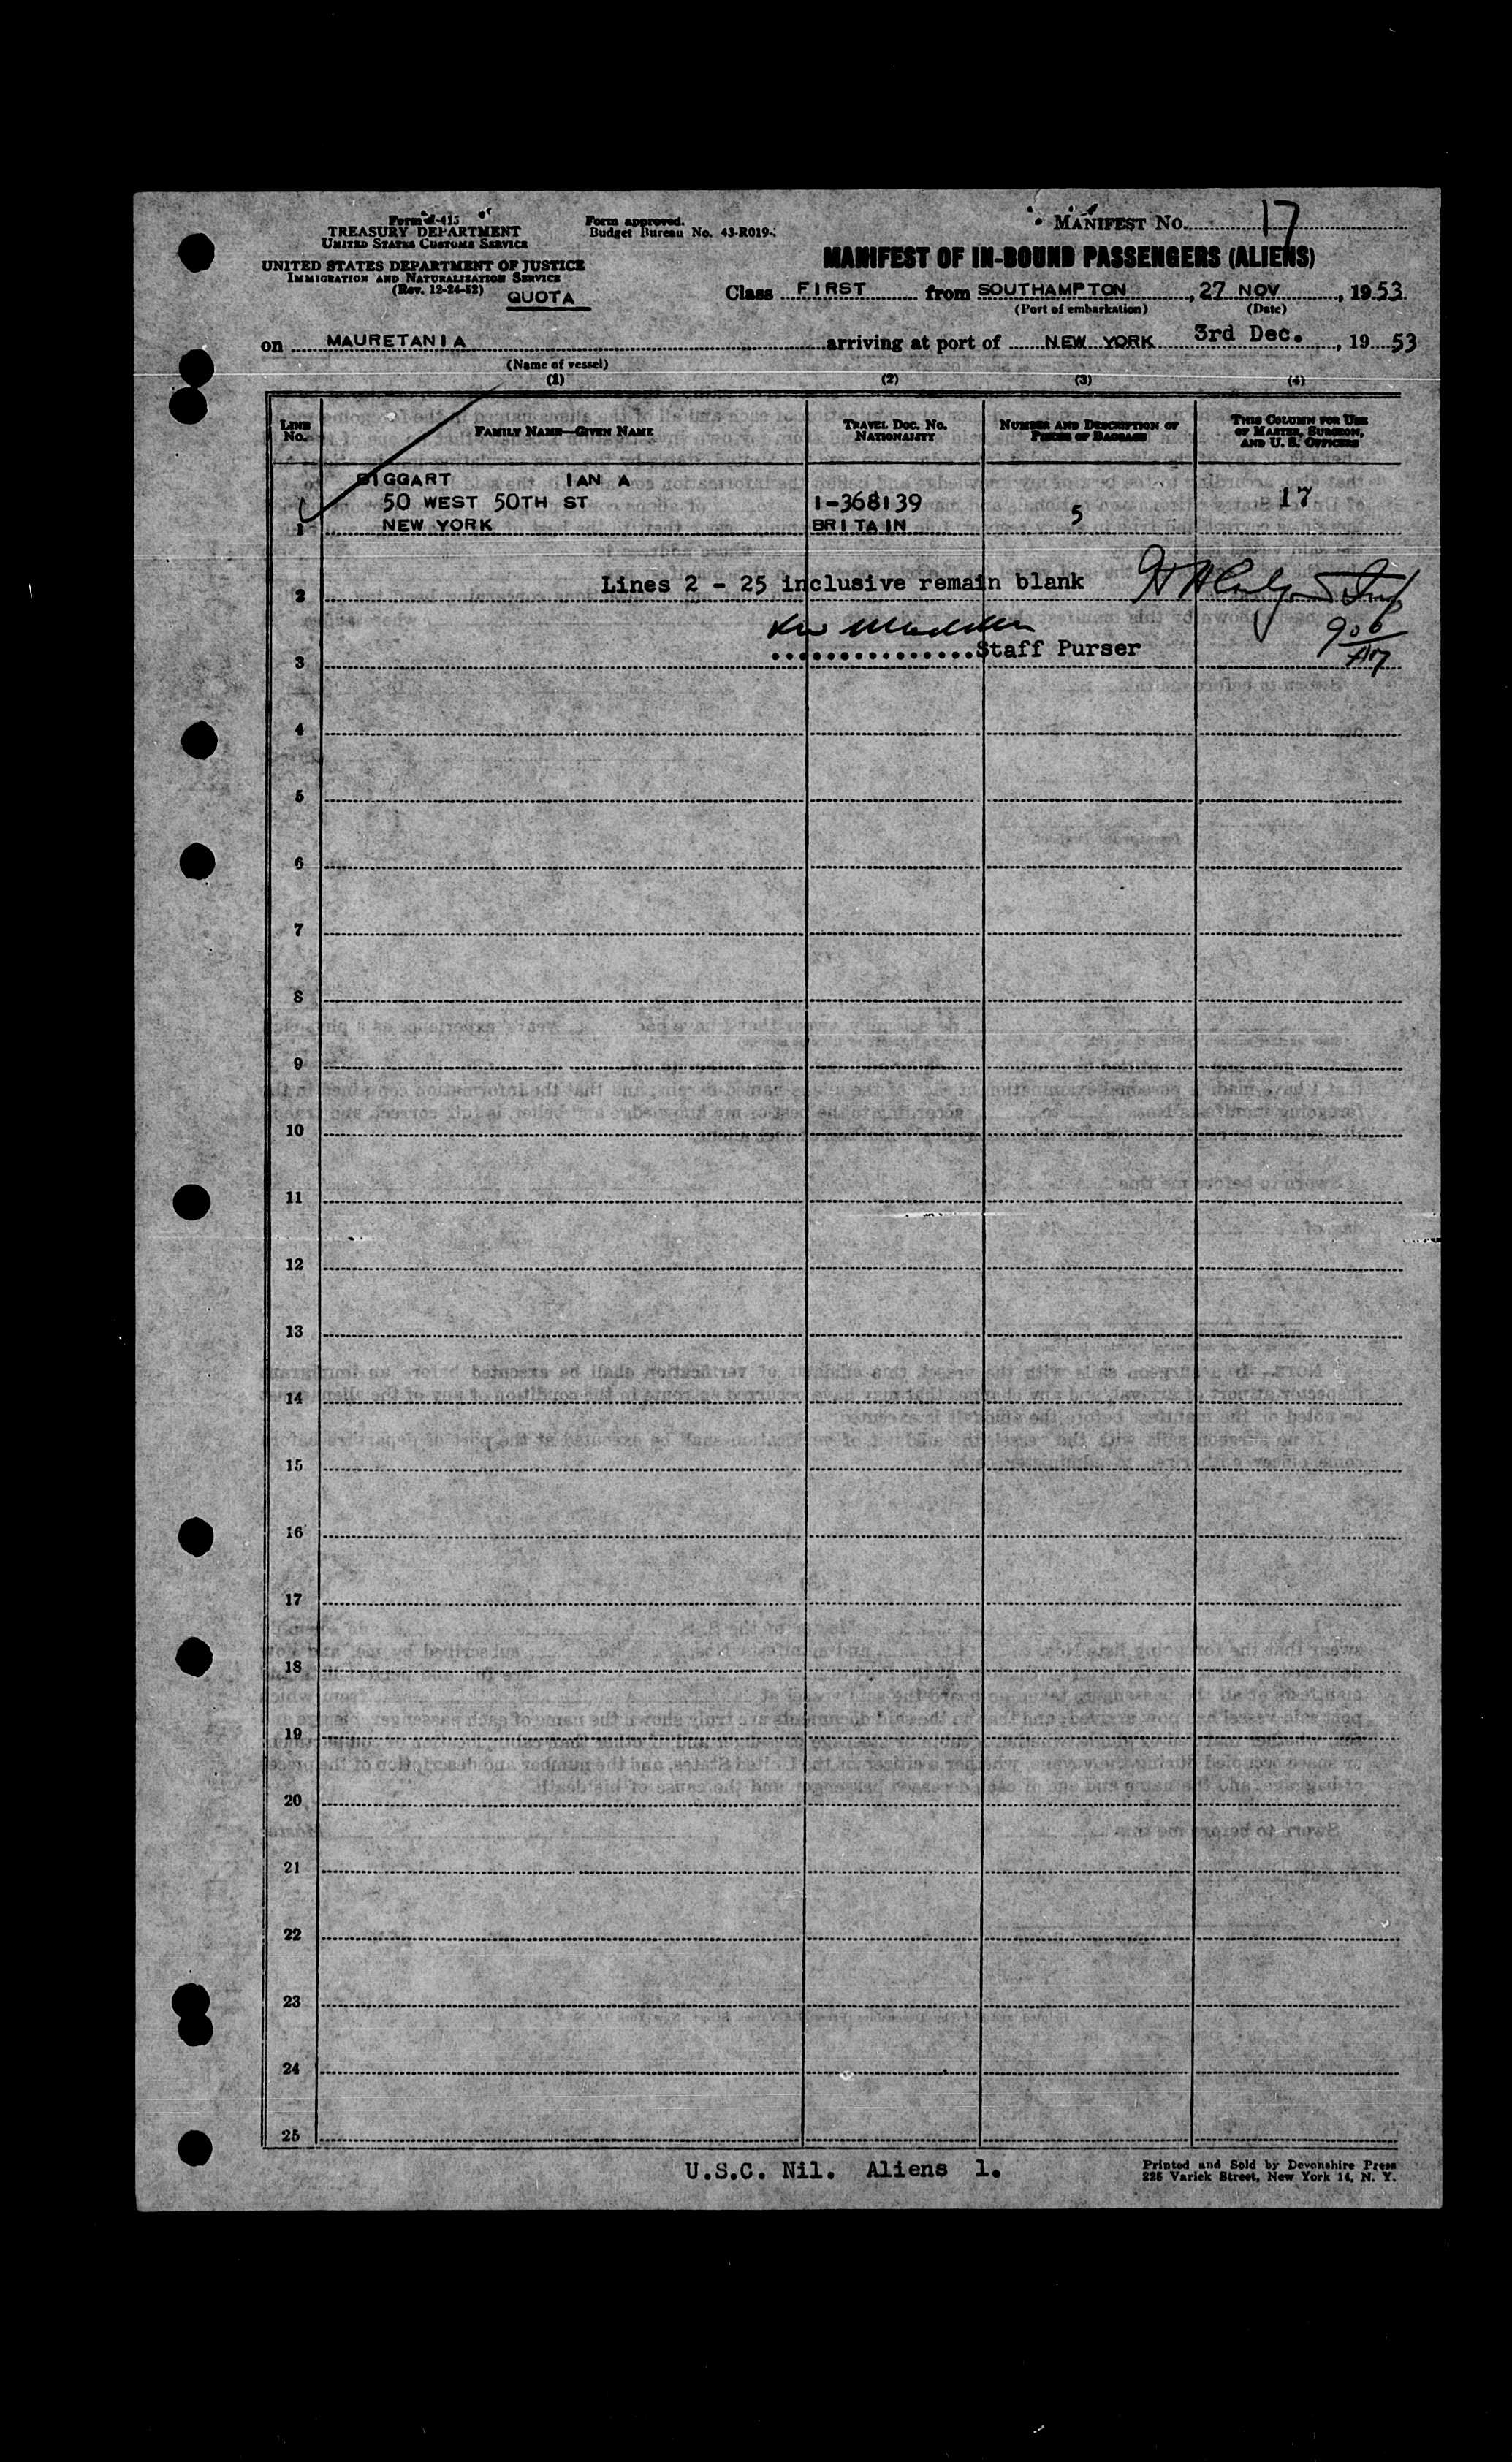 Form I-415
TREASURY DEPARTMENT
UNITED STATES CUSTOMS SERVICE
UNITED STATES DEPARTMENT OF JUSTICE
IMMIGRATION AND NATURALIZATION SERVICE
(Rev. 12-24-52)
QUOTA
Form approved.
Budget Bureau No. 43-R019-
MANIFEST No. 17
MANIFEST OF IN-BOUND PASSENGERS (ALIENS)
Class FIRST from SOUTHAMPTON, 27 NOV, 1953
(Port of embarkation) (Date)
on MAURETANIA arriving at port of NEW YORK 3rd Dec., 19 53
(Name of vessel)
(1) (2) (3) (4)
LINE No. FAMILY NAME—GIVEN NAME TRAVEL DOC. NO. NATIONALITY NUMBER AND DESCRIPTION OF PIECES OF BAGGAGE THIS COLUMN FOR USE OF MASTER, SURGEON, AND U. S. OFFICERS
BIGGART IAN A
50 WEST 50TH ST I-368139 17
1 NEW YORK BRITAIN 5
2 Lines 2 - 25 inclusive remain blank
3 ...............Staff Purser
4
5
6
7
8
9
10
11
12
13
14
15
16
17
18
19
20
21
22
23
24
25
U.S.C. Nil. Aliens 1.
Printed and Sold by Devonshire Press
225 Varick Street, New York 14, N. Y.